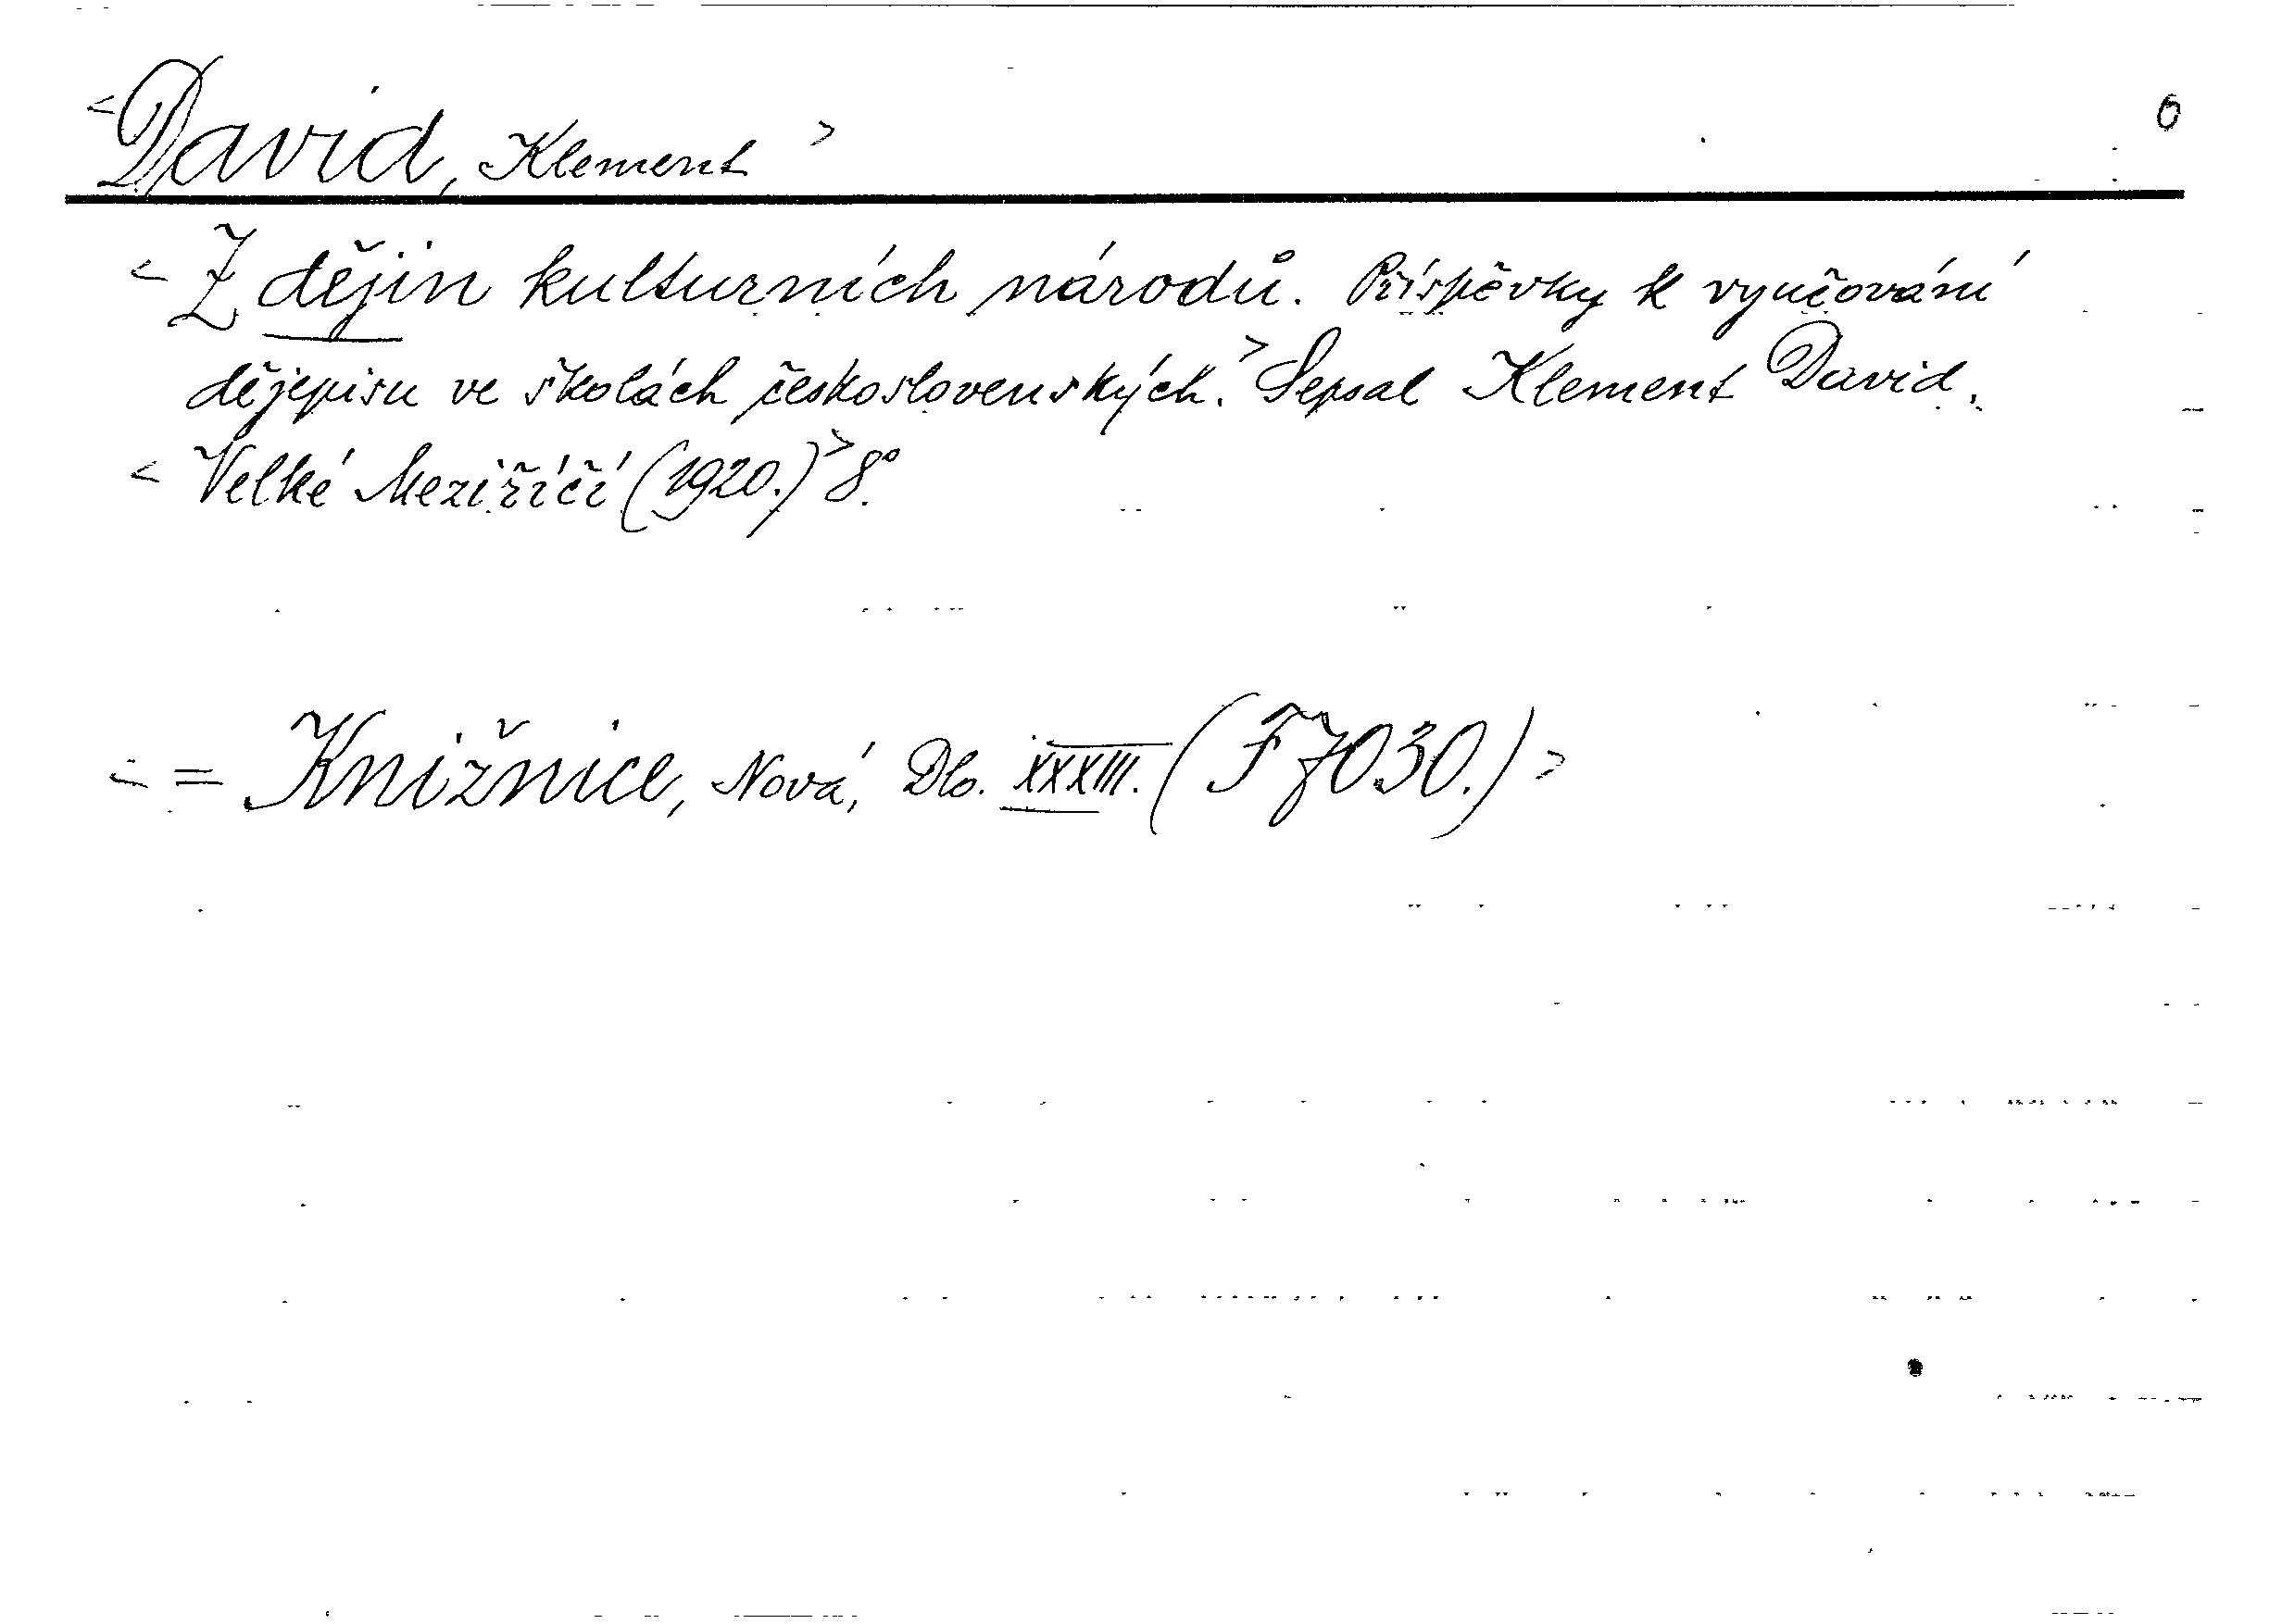 <David, Klement> 6
<Z dějin kulturních národů. Příspěvky k vyučování
dějepisu ve školách československých.> Sepsal Klement David.
<Velké Meziříčí (1920.)> 8°.
<= Knižnice, Nová, Dlo. XXXIII. (F 7030.)>